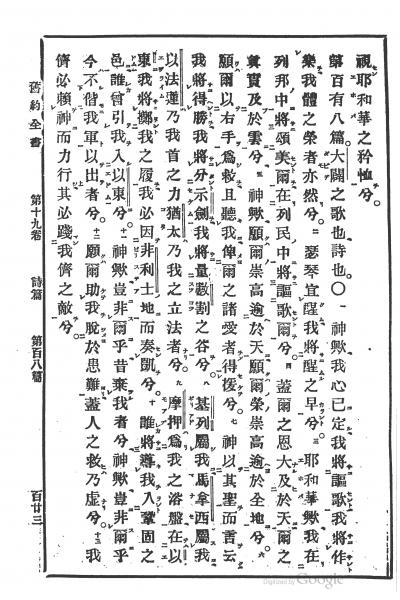 視耶和華之矜恤兮。
第百有八篇。大闢之歌也詩也〇一神歟我心已定我將謳歌我將作
樂我體之榮者亦然兮。二瑟琴宜醒我將醒之早兮。三耶和華歟我在
列邦中將頌美爾在列民中將謳歌爾兮。四蓋爾之恩大及於天爾之
眞實及於雲兮。五神歟願爾崇高逾於天願爾榮崇高逾於全地兮。六
願爾以右手爲救且聽我俾爾之諸愛者得援兮。七神以其聖而言云
我將得勝我將分示劍我將量數割之谷兮。八基列屬我馬拿西屬我
以法蓮乃我首之力猶太乃我之立法者兮。九摩押爲我之浴盤在以
東我將擲我之履我必因非利士地而奏凱兮。十誰將導我入鞏固之
邑誰曾引我入以東兮。十一神歟豈非爾乎昔棄我者兮神歟豈非爾乎
今不偕我軍以出者兮。十二願爾助我脫於患難蓋人之救乃虛兮。十三我
儕必賴神而力行其必踐我儕之敵兮。
舊約全書 第十九卷 詩篇 第百八篇 百廿三
Digitized by Google